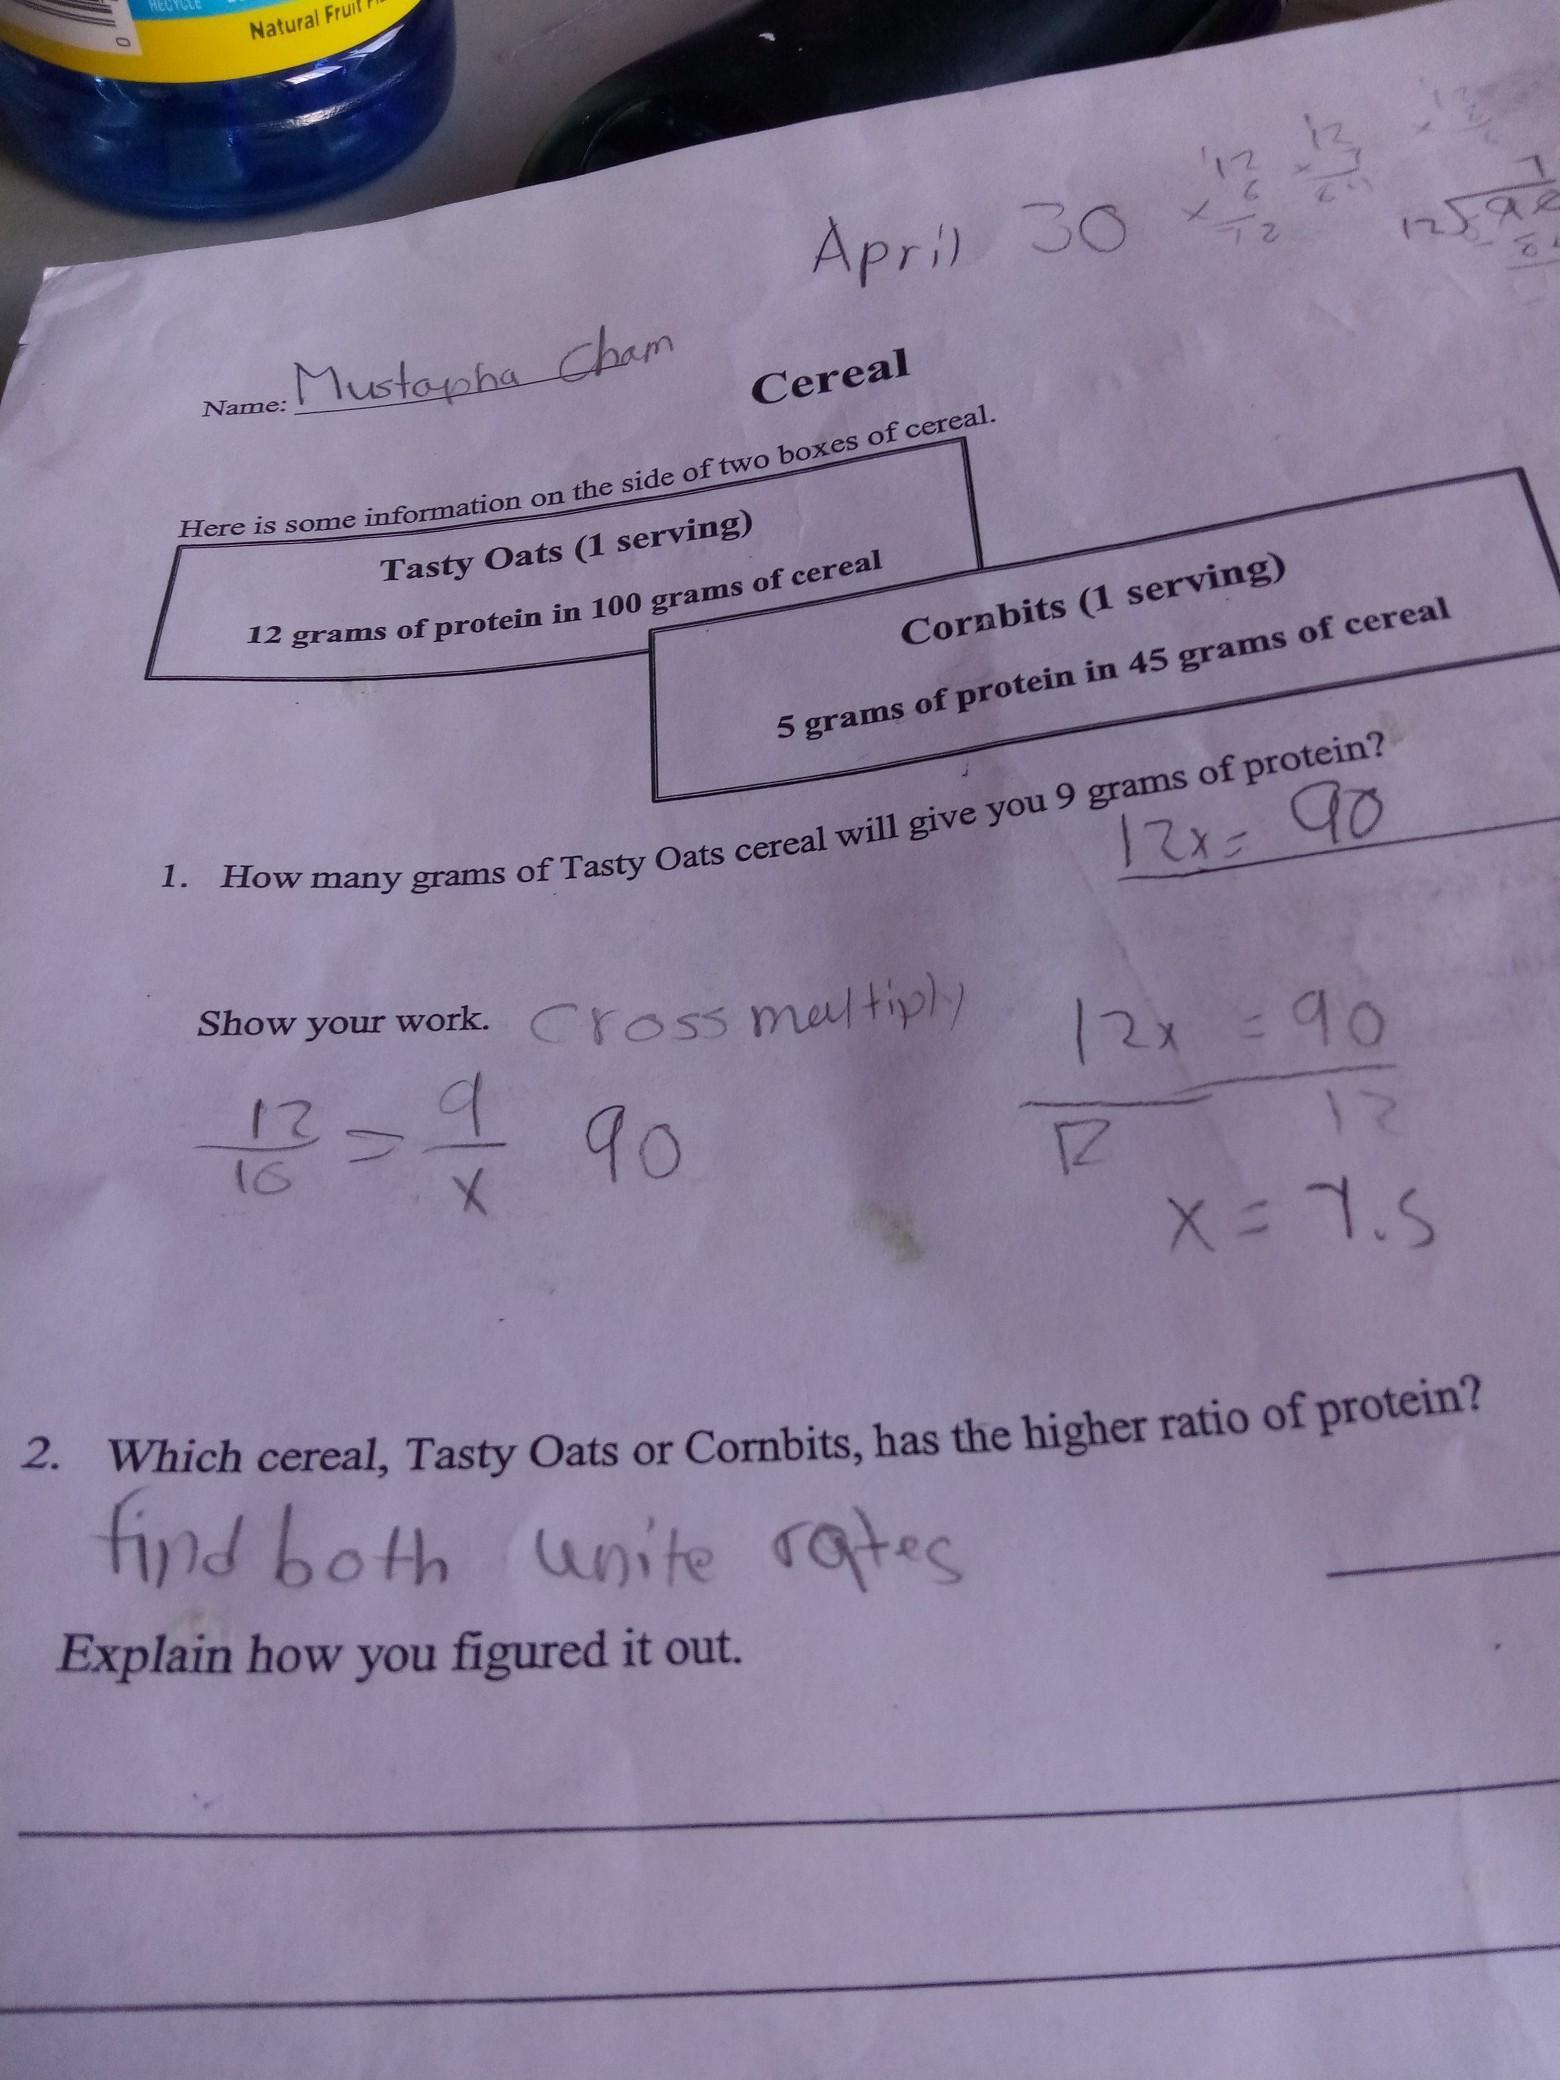 RECYCLE
Natural Fruit
April 30
12
x 6
72
12
x 7
12
Name: Mustapha Cham
Cereal
Here is some information on the side of two boxes of cereal.
Tasty Oats (1 serving)
12 grams of protein in 100 grams of cereal
Cornbits (1 serving)
5 grams of protein in 45 grams of cereal
1. How many grams of Tasty Oats cereal will give you 9 grams of protein?
12x = 90
Show your work. Cross multiply
12x = 90
12 = 9 90
10 x
12 12
x = 7.5
2. Which cereal, Tasty Oats or Cornbits, has the higher ratio of protein?
find both unite rates
Explain how you figured it out.